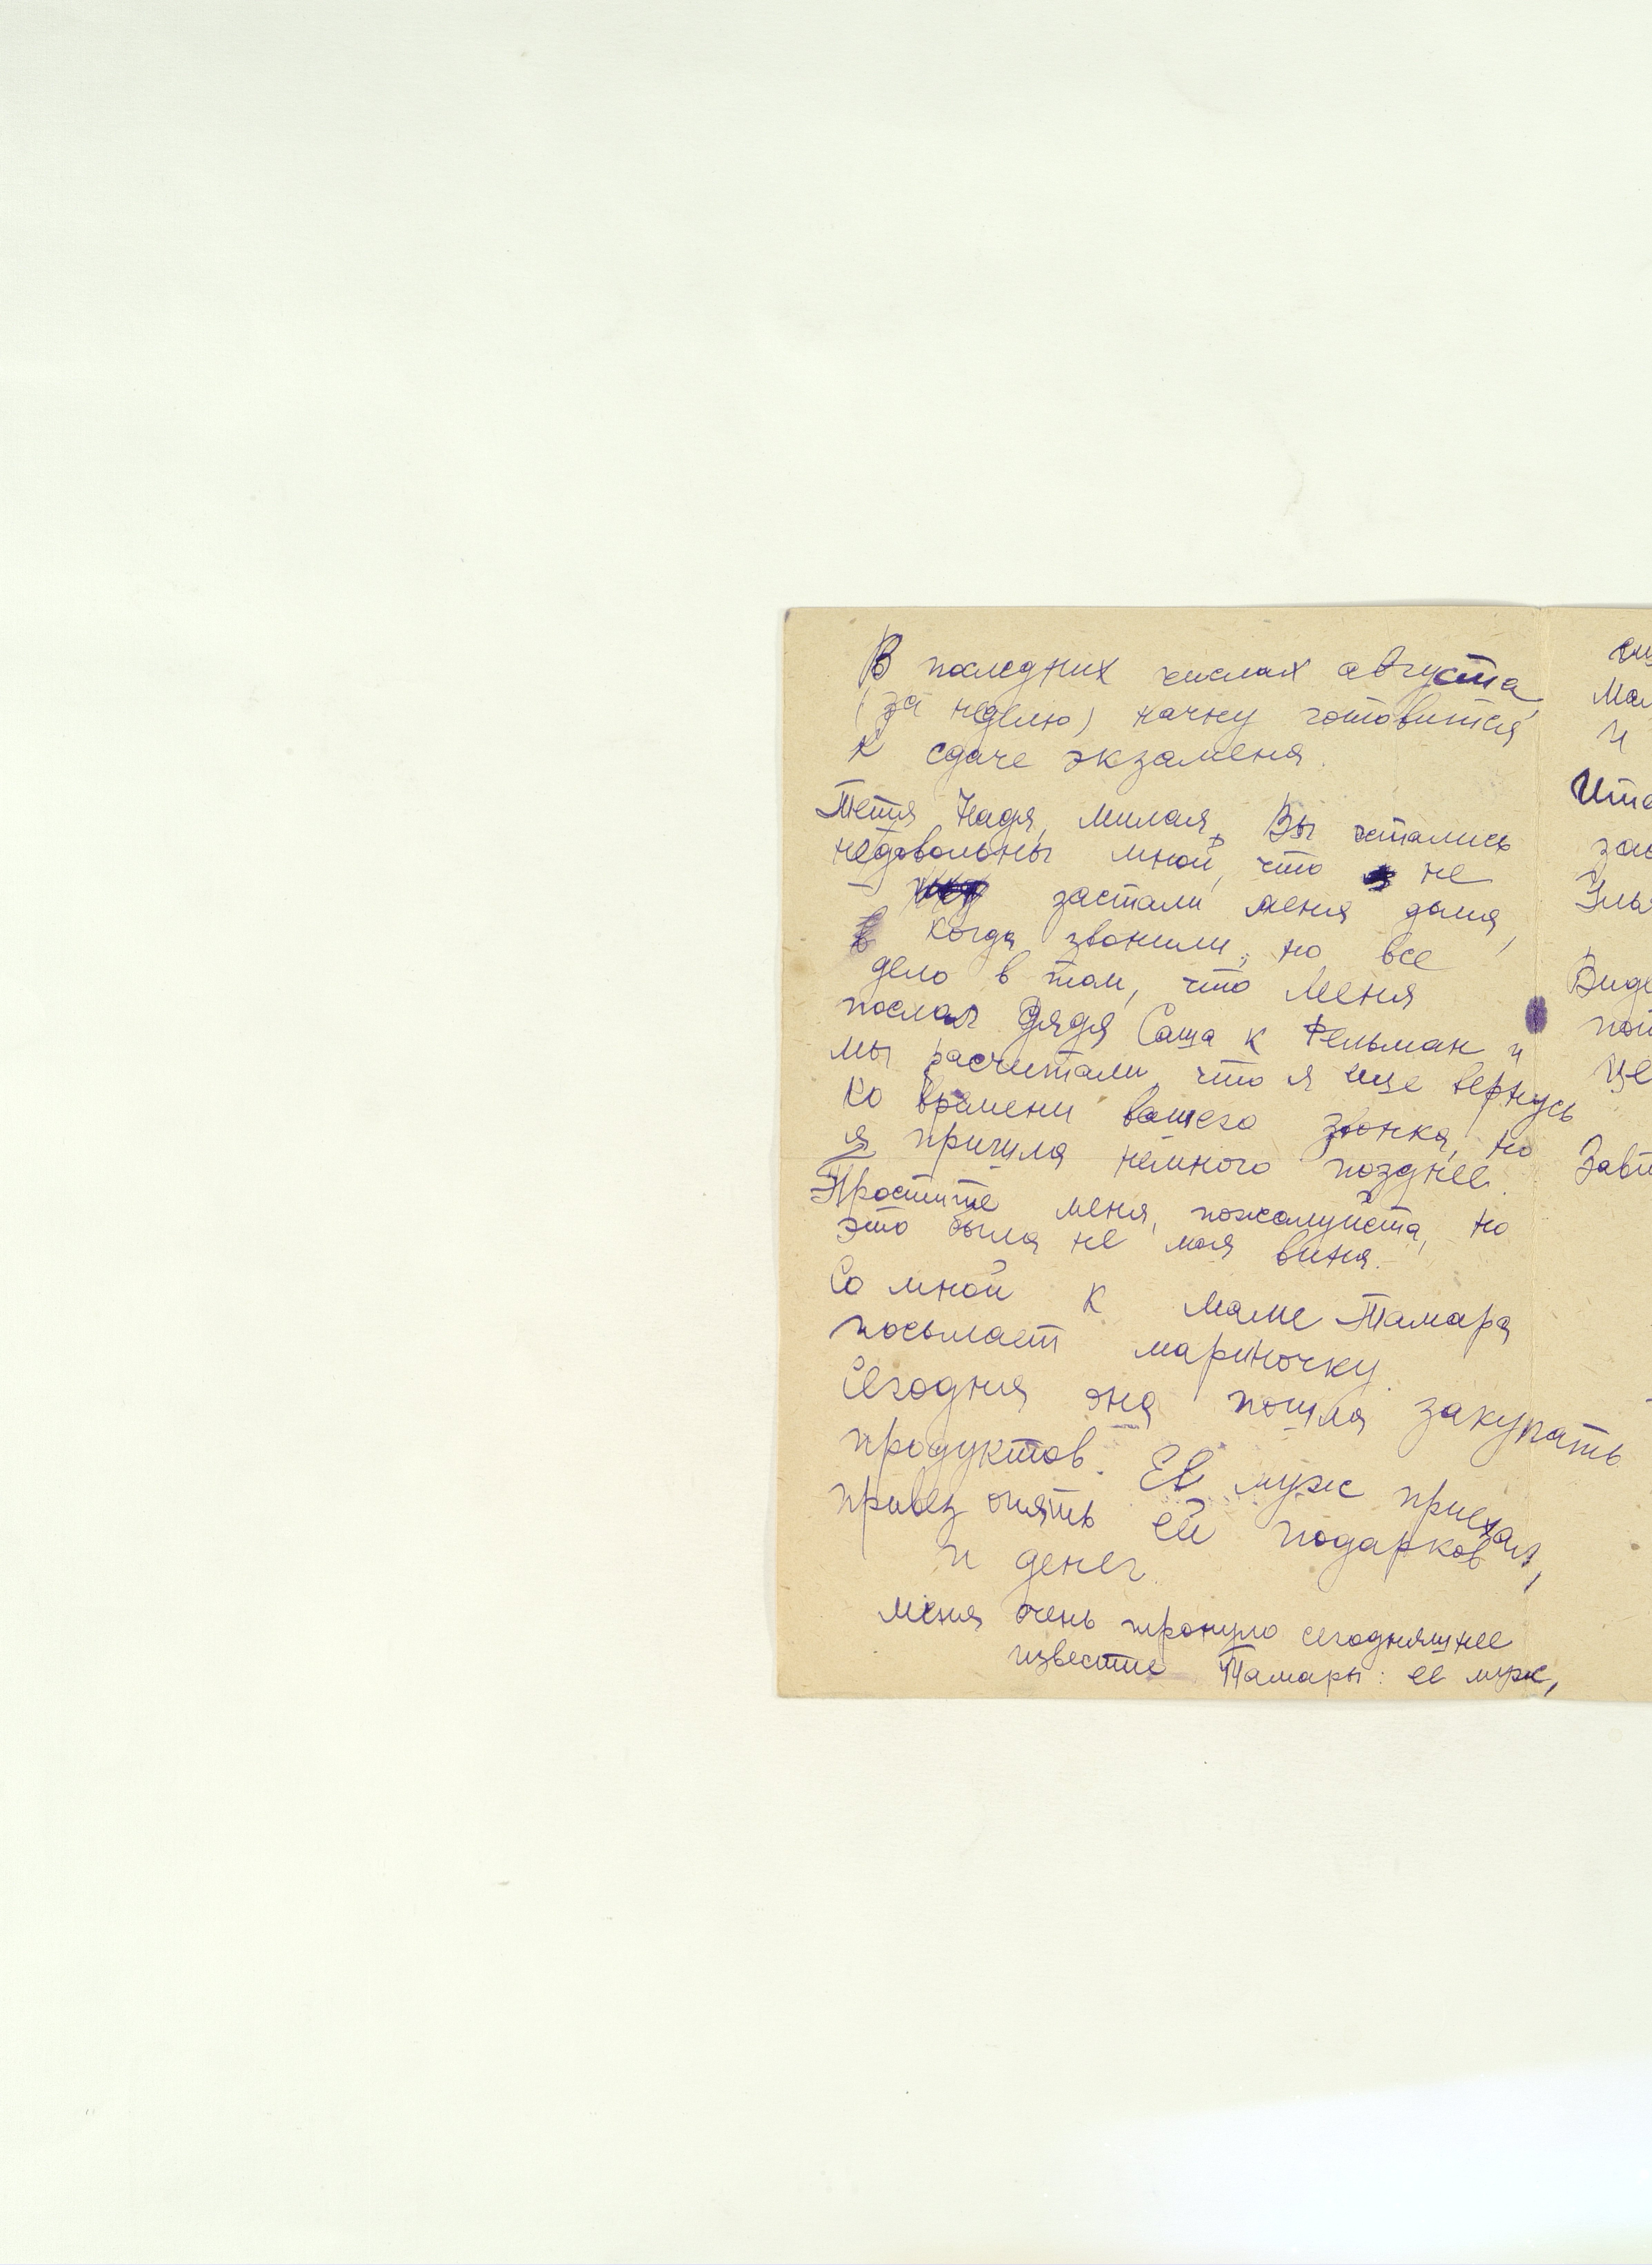 В последних числах августа
(за неделю) начну готовится
к сдаче экзамена.
Тетя Надя, милая, Вы остались
недовольны мной, что не
застали меня дома,
когда звонили, но все
дело в том, что меня
послал дядя Саша к Фельман и
мы расчитали, что я еще вернусь
ко времени вашего звонка, но
я пришла немного позднее.
Простите меня, пожалуйста, но
это была не моя вина.
Со мной к маме Тамара
посылает мариночку.
Сегодня она пошла закупать
продуктов. Её муж приехал,
привез опять ей подарков
и денег.
Меня очень тронуло сегодняшнее
известие Тамары: ее муж,
и